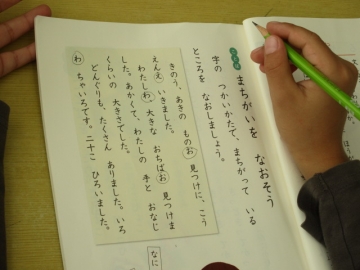 まちがいを なおそう
字の つかいかたで、まちがって いる
ところを なおしましょう。
きのう、あきの ものお 見つけに、こう
えんえ いきました。
わたしわ、大きな おちばお 見つけま
した。あかくて、わたしの 手と おなじ
くらいの 大きさでした。
どんぐりも、たくさん ありました。いろ
わ ちゃいろです。二十こ ひろいました。
なに